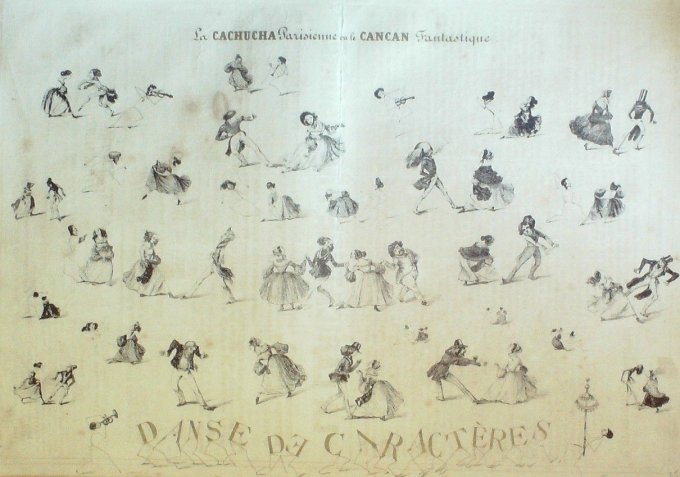 La CACHUCHA Parisienne ou le CANCAN Fantastique
DANSE DE CARACTÈRES